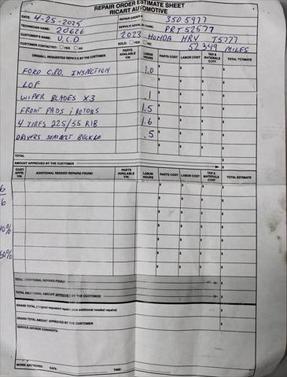 REPAIR ORDER ESTIMATE SHEET
RICART AUTOMOTIVE
DATE: 4-25-2025 REPAIR ORDER #: 350 5977
20626 PRT52577
CUSTOMER'S NAME: U.C.D 2023 HONDA HRV T5777
CUSTOMER CONTACTED: YES NO 52,349 MILES
ORIGINAL REQUESTED SERVICES/REPAIRS PARTS AVAILABLE Y/N LABOR HOURS PARTS COST LABOR COST TAX & MATERIALS COST TOTAL ESTIMATE
FORD C.P.O. INSPECTION 1.0
LOF
WIPER BLADES X3 .1
FRONT PADS & ROTORS 1.5
4 TIRES 225/55 R18 1.6
DRIVERS SEATBELT .5
TOTAL
AMOUNT APPROVED BY THE CUSTOMER
ADDITIONAL NEEDED REPAIRS FOUND PARTS AVAILABLE Y/N LABOR HOURS PARTS COST LABOR COST TAX & MATERIALS COST TOTAL ESTIMATE
6
6
TOTAL ADDITIONAL REPAIRS FOUND
TOTAL ADDITIONAL AMOUNT APPROVED BY THE CUSTOMER
GRAND TOTAL
GRAND TOTAL AMOUNT APPROVED BY THE CUSTOMER
DATE: TIME: